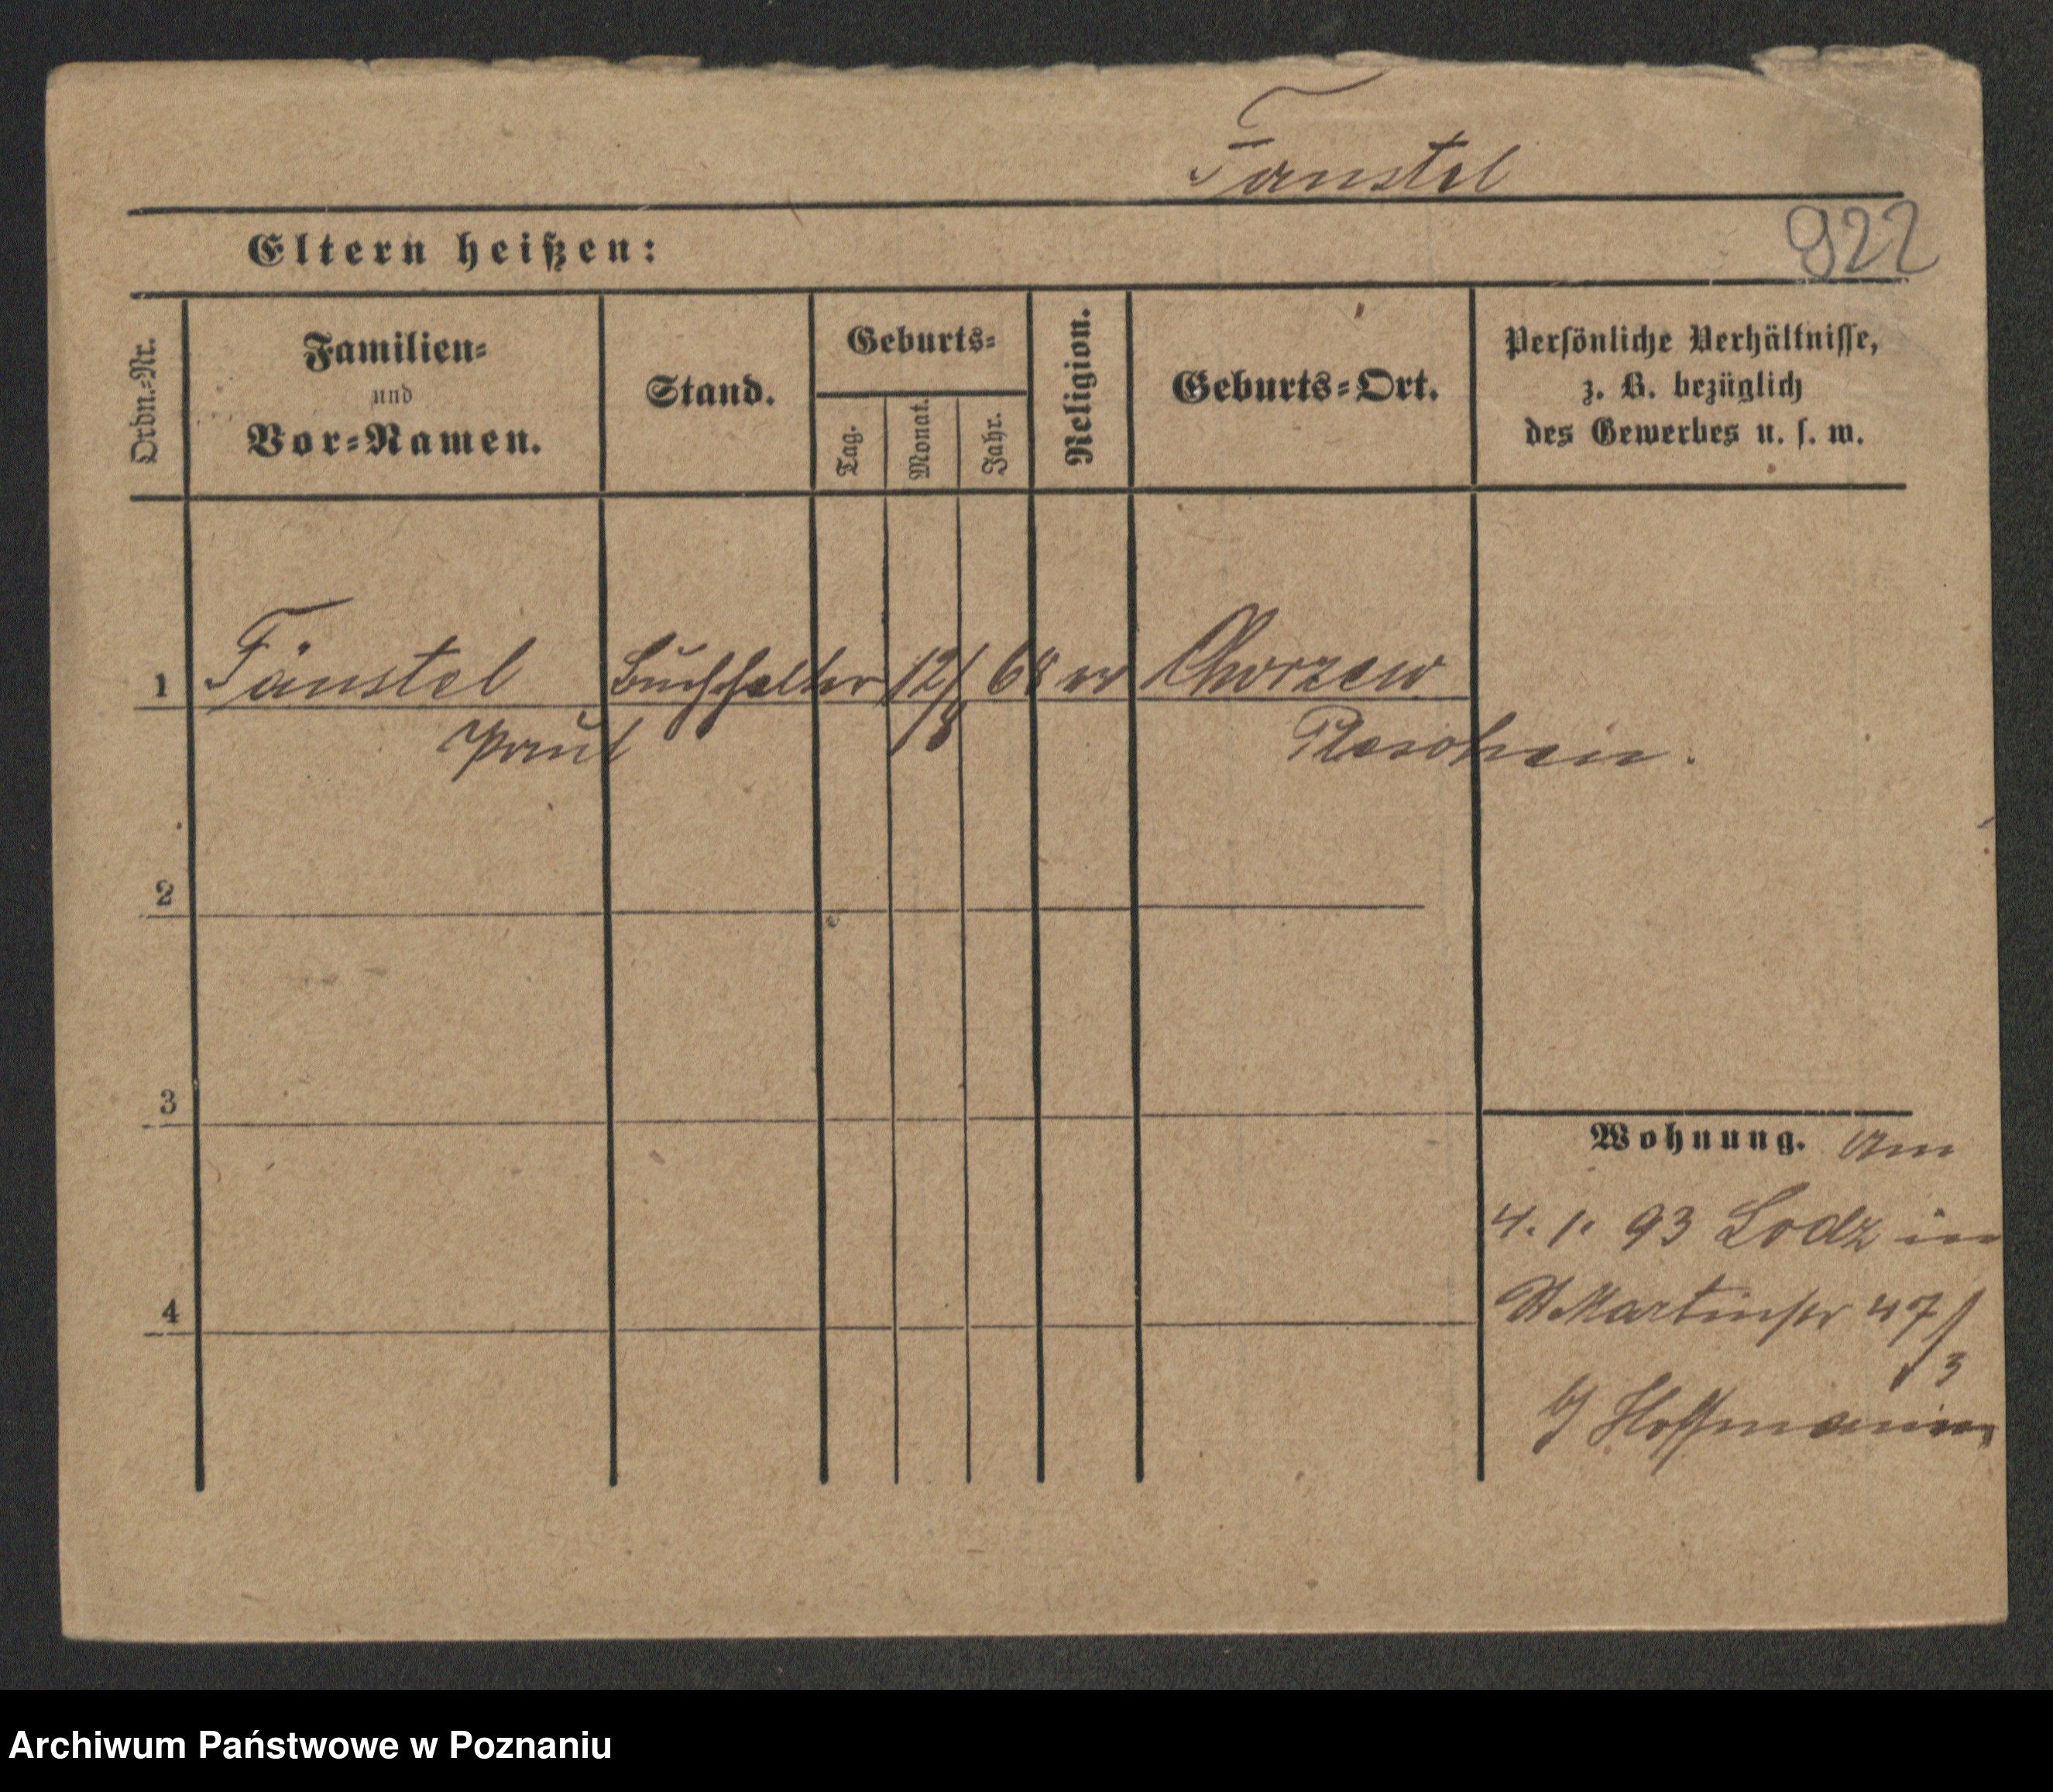 Fanstel
Eltern heißen:
922
Ordn.=Nr.
Familien=
und
Vor=Namen.
Stand.
Geburts=
Tag.
Monat.
Jahr.
Religion.
Geburts=Ort.
Persönliche Verhältnisse,
z. B. bezüglich
des Gewerbes u. s. w.
1 Fänstel Buchhalter 12/8 68 Chorzew
Paul Pleschen.
2
3
Wohnung. Am
4. 1. 93 Lodz in
St Martinstr 47/3
4
b/ Hoffmann
Archiwum Państwowe w Poznaniu